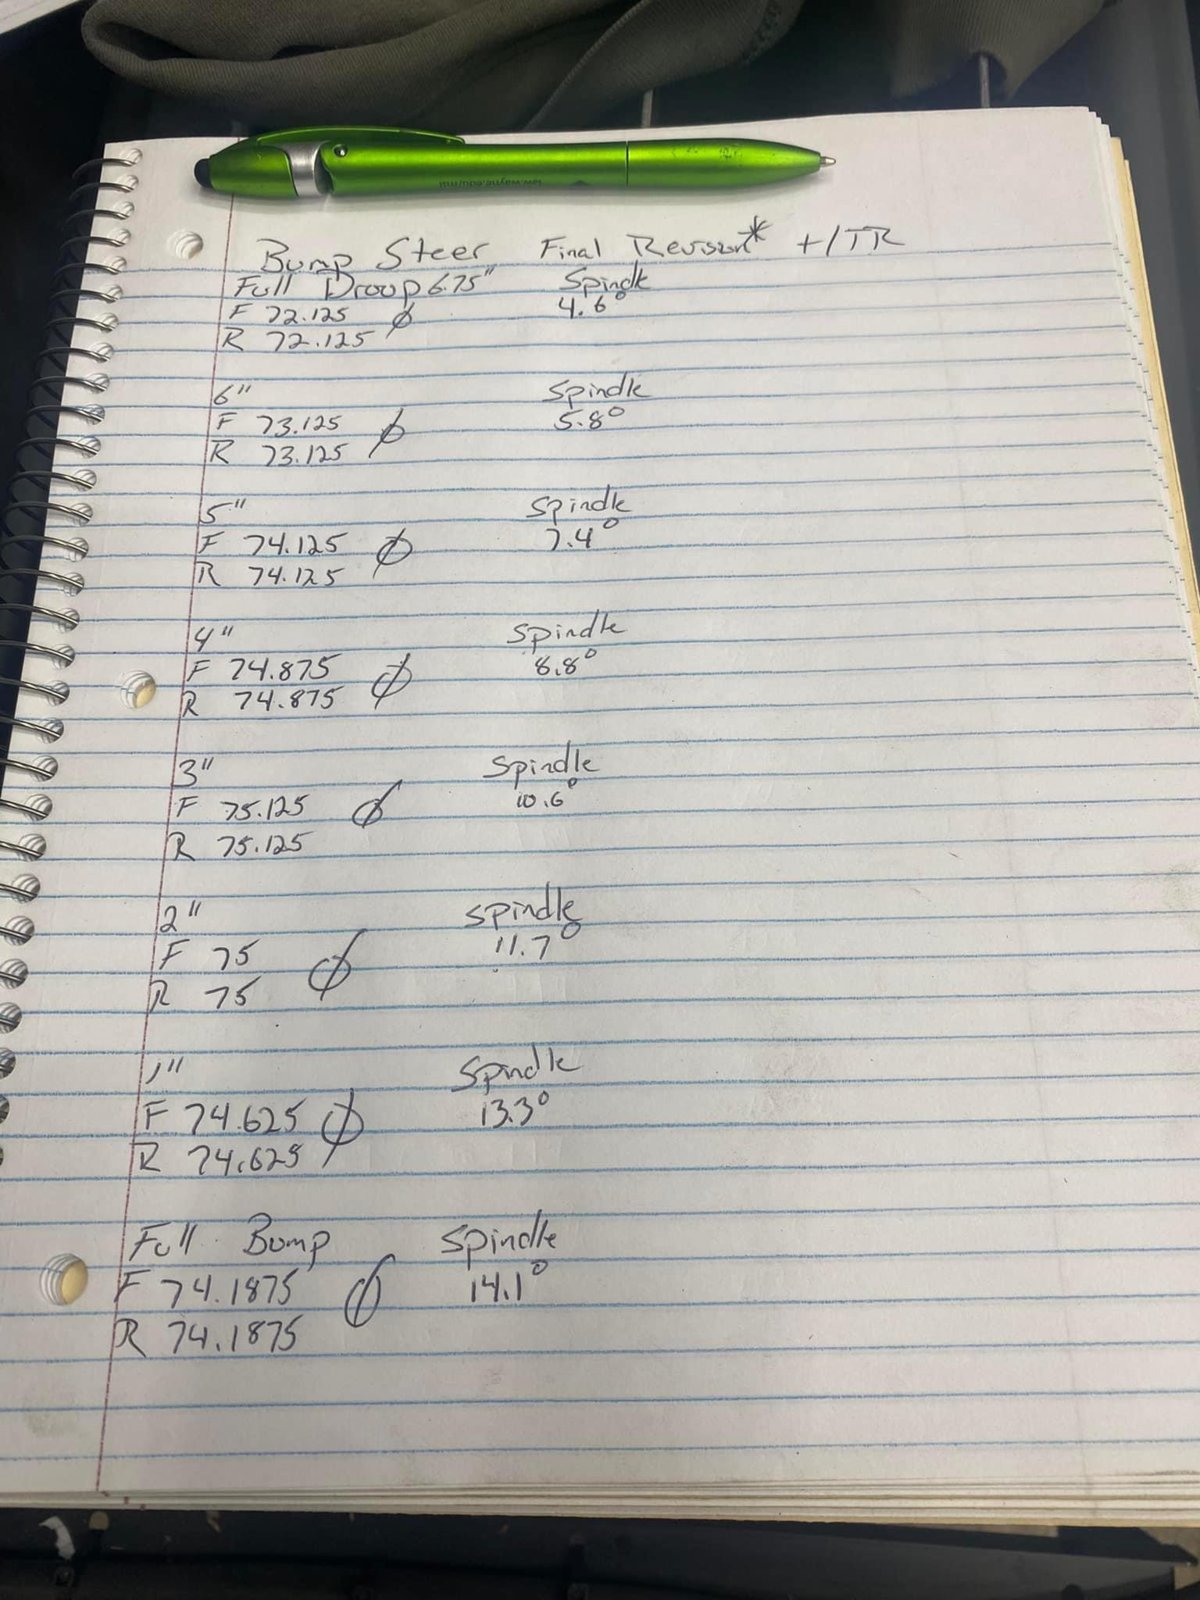 law.wayne.edu/rml
Bump Steer Final Revision* +/TR
Full Droop 6.75" Spindle
F 72.125 ϕ 4.6°
R 72.125
6" Spindle
F 73.125 ϕ 5.8°
R 73.125
5" Spindle
F 74.125 ϕ 7.4°
R 74.125
4" Spindle
F 74.875 ϕ 8.8°
R 74.875
3" Spindle
F 75.125 ϕ 10.6°
R 75.125
2" Spindle
F 75 ϕ 11.7°
R 75
1" Spindle
F 74.625 ϕ 13.3°
R 74.625
Full Bump Spindle
F 74.1875 ϕ 14.1°
R 74.1875